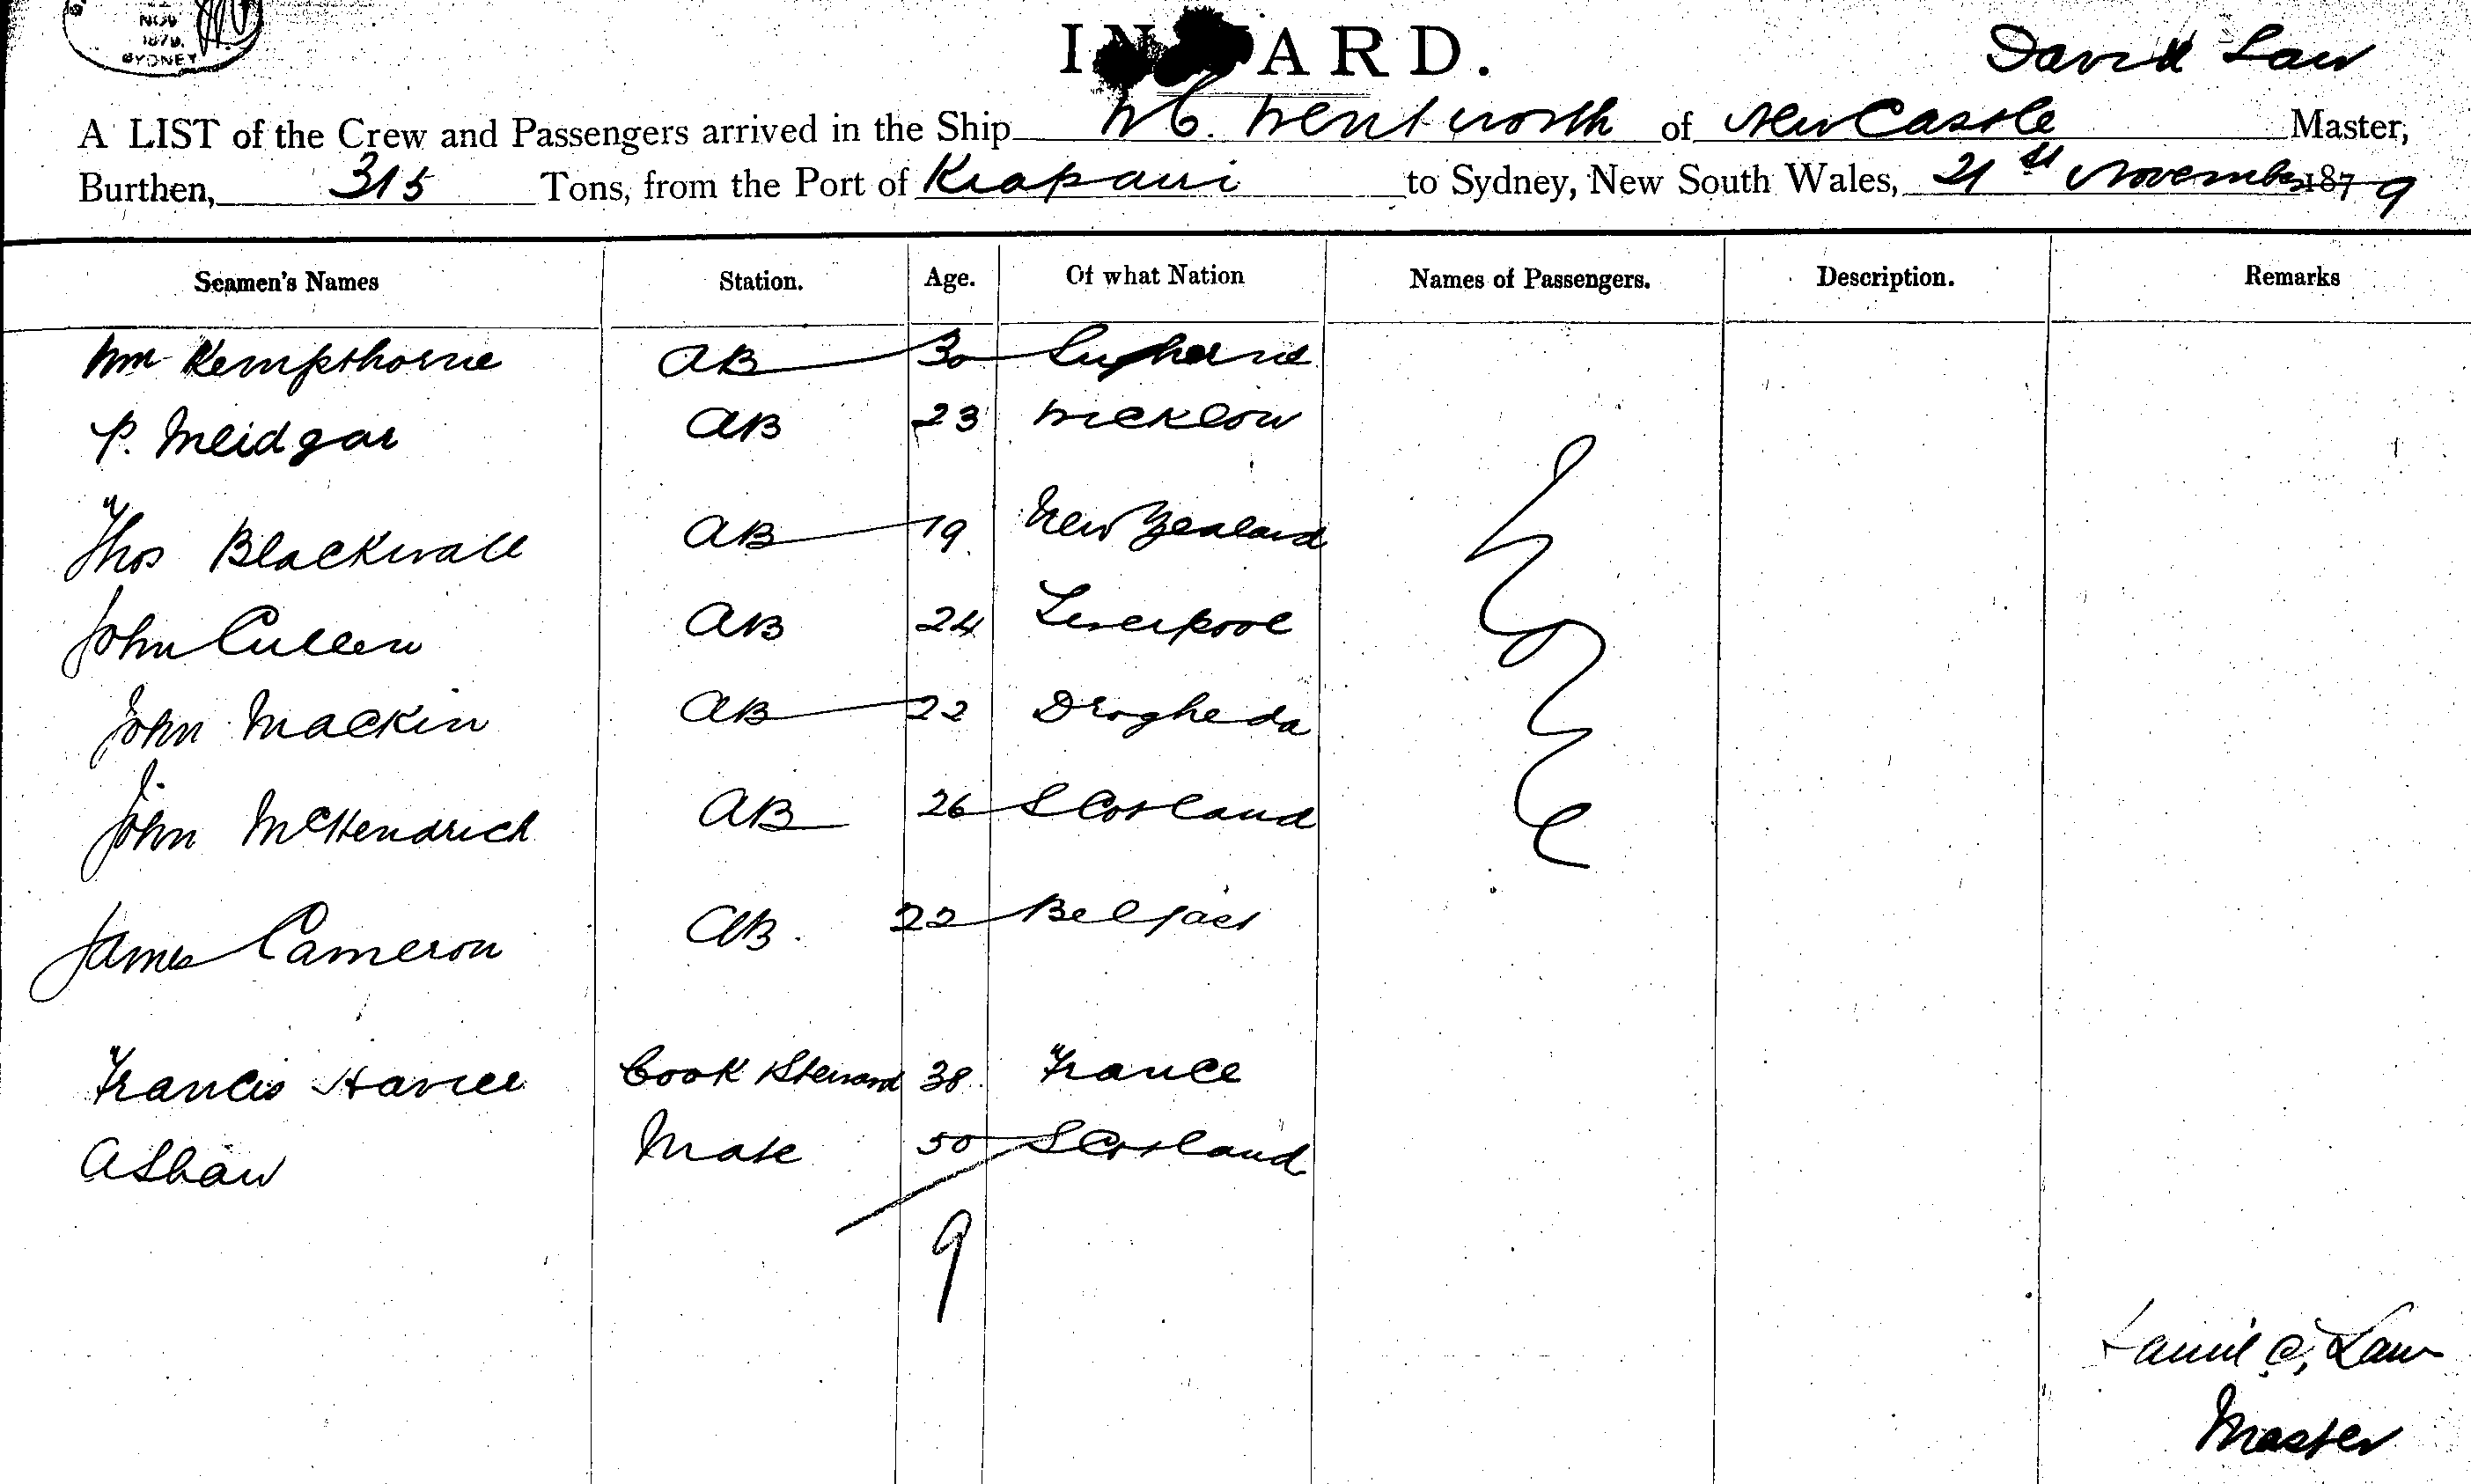 NOV
1879.
SYDNEY
INWARD.
David Law
A LIST of the Crew and Passengers arrived in the Ship WC. Wentworth of NewCastle Master,
Burthen, 315 Tons, from the Port of Kiapaui to Sydney, New South Wales, 21st November 1879
Seamen's Names Station. Age. Of what Nation Names of Passengers. Description. Remarks
Wm Kempthorne AB 30
P. Meidgar AB 23 Wicklow
Thos Blackwall AB 19 New Zealand
John Cullen AB 24 Liverpool
John Mackin AB 22 Drogheda
John McKendrick AB 26 Scotland
James Cameron AB. 22 Belfast
Francis Xavier Cook Steward 38 France
A Shaw Mate 50 Scotland
9
C, Law
Master